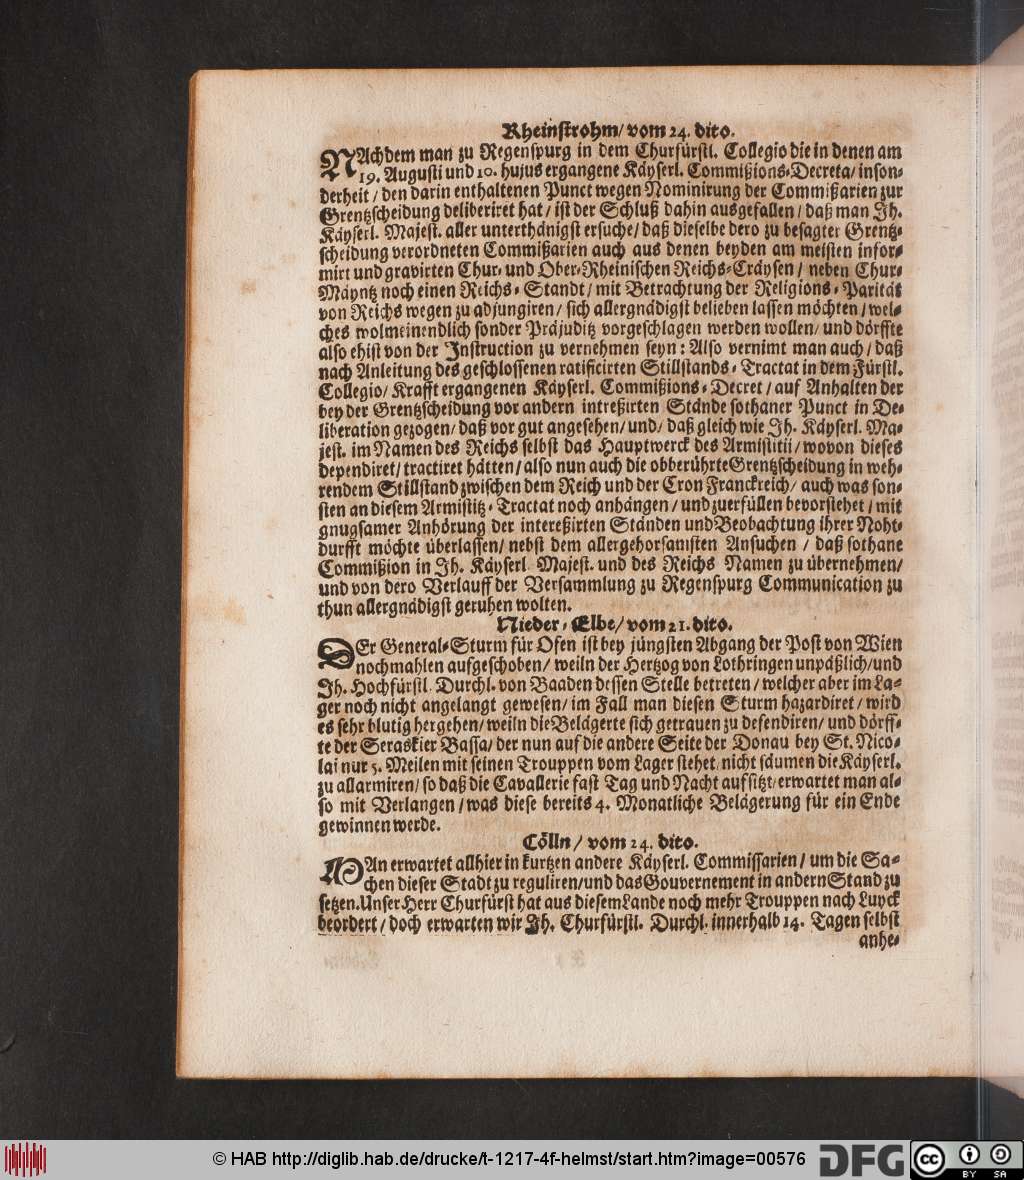 Rheinstrohm/ vom 24. dito.
NAchdem man zu Regenspurg in dem Churfürstl. Collegio die in denen am
19. Augusti und 10. hujus ergangene Käyserl. Commißions-Decreta/ inson-
derheit / den darin enthaltenen Punct wegen Nominirung der Commißarien zur
Grentzscheidung deliberiret hat / ist der Schluß dahin ausgefallen / daß man Ih.
Käyserl. Majest. aller unterthänigst ersuche/ daß dieselbe dero zu besagter Grentz-
scheidung verordneten Commißarien auch aus denen beyden am meisten infor-
mirt und gravirten Chur- und Ober-Rheinischen Reichs-Cräysen / neben Chur-
Mäyntz noch einen Reichs-Standt / mit Betrachtung der Religions-Parität
von Reichs wegen zu adjungiren / sich allergnädigst belieben lassen möchten / wel-
ches wolmeinendlich sonder Präjuditz vorgeschlagen werden wollen/ und dörffte
also ehist von der Instruction zu vernehmen seyn : Also vernimt man auch / daß
nach Anleitung des geschlossenen ratificirten Stillstands-Tractat in dem Fürstl.
Collegio/ Krafft ergangenen Käyserl. Commißions-Decret / auf Anhalten der
bey der Grentzscheidung vor andern intreßirten Stände sothaner Punct in De-
liberation gezogen/ daß vor gut angesehen/ und/ daß gleich wie Ih. Käyserl. Ma-
jest. im Namen des Reichs selbst das Hauptwerck des Armistitii/ wovon dieses
dependiret/ tractiret hätten / also nun auch die obberührte Grentzscheidung in weh-
rendem Stillstand zwischen dem Reich und der Cron Franckreich/ auch was son-
sten an diesem Armistitz-Tractat noch anhängen / und zuerfüllen bevorstehet / mit
gnugsamer Anhörung der intereßirten Ständen und Beobachtung ihrer Noht-
durfft möchte überlassen/ nebst dem allergehorsamsten Ansuchen / daß sothane
Commißion in Ih. Käyserl. Majest. und des Reichs Namen zu übernehmen/
und von dero Verlauff der Versammlung zu Regenspurg Communication zu
thun allergnädigst geruhen wolten.
Nieder-Elbe/ vom 21. dito.
DEr General-Sturm für Ofen ist bey jüngsten Abgang der Post von Wien
nochmahlen aufgeschoben/ weiln der Hertzog von Lothringen unpäßlich/und
Ih. Hochfürstl. Durchl. von Baaden dessen Stelle betreten / welcher aber im La-
ger noch nicht angelangt gewesen/ im Fall man diesen Sturm hazardiret / wird
es sehr blutig hergehen/ weiln die Belägerte sich getrauen zu defendiren/ und dörff-
te der Seraskier Bassa/ der nun auf die andere Seite der Donau bey St. Nico-
lai nur 5. Meilen mit seinen Trouppen vom Lager stehet/ nicht säumen die Käyserl.
zu allarmiren/ so daß die Cavallerie fast Tag und Nacht aufsitzt/ erwartet man al-
so mit Verlangen / was diese bereits 4. Monatliche Belägerung für ein Ende
gewinnen werde.
Cölln / vom 24. dito.
MAn erwartet allhier in kurtzen andere Käyserl. Commissarien / um die Sa-
chen dieser Stadt zu reguliren/und das Gouvernement in andern Stand zu
setzen. Unser Herr Churfürst hat aus diesem Lande noch mehr Trouppen nach Luyck
beordert / doch erwarten wir Ih. Churfürstl. Durchl. innerhalb 14. Tagen selbst
anhe-
© HAB http://diglib.hab.de/drucke/t-1217-4f-helmst/start.htm?image=00576
DFG
cc
BY SA